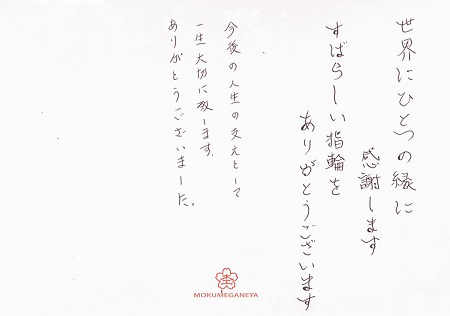 世界にひとつの縁に
感謝します
すばらしい指輪を
ありがとうございます
今後の人生の支えとして
一生大切に致します。
ありがとうございました。
MOKUMEGANEYA